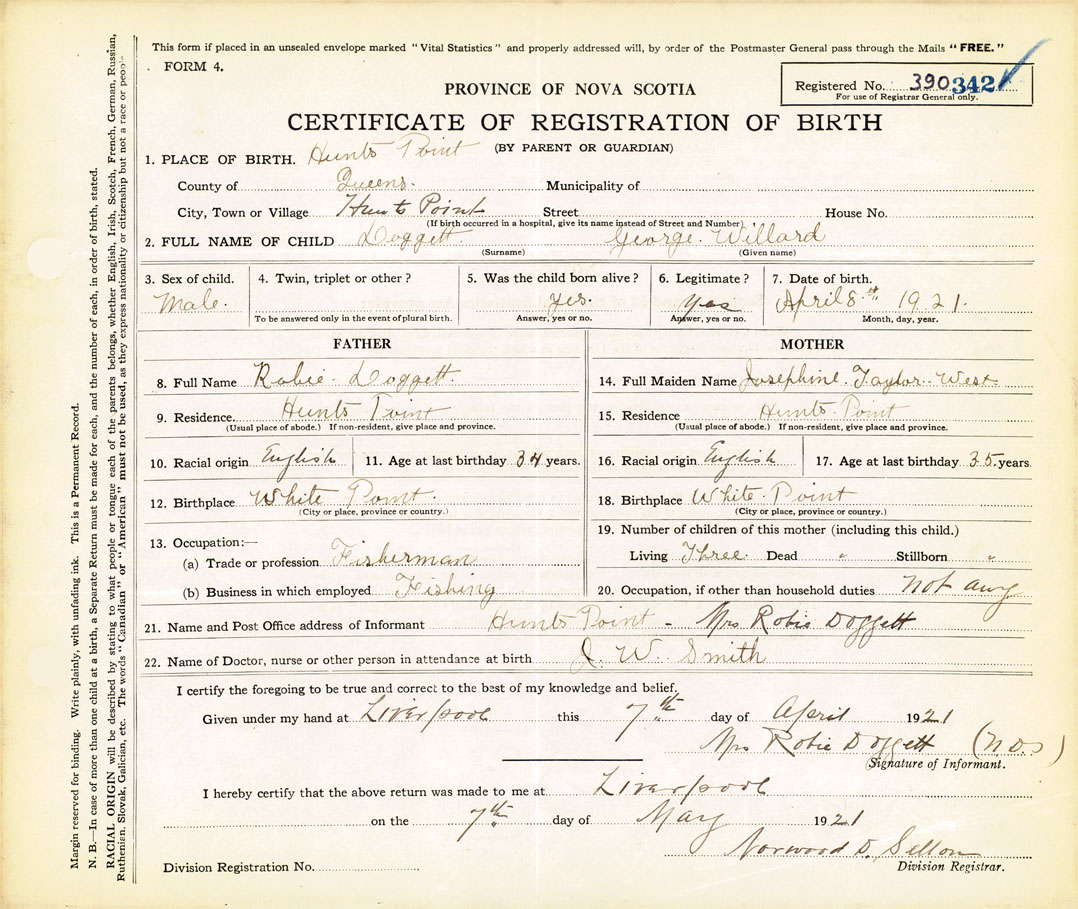 This form if placed in an unsealed envelope marked "Vital Statistics" and properly addressed will, by order of the Postmaster General pass through the Mails "FREE."
FORM 4.
Registered No. 390 342
For use of Registrar General only.
PROVINCE OF NOVA SCOTIA
CERTIFICATE OF REGISTRATION OF BIRTH
(BY PARENT OR GUARDIAN)
1. PLACE OF BIRTH. Hunts Point
County of Queens. Municipality of
City, Town or Village Hunts Point Street House No.
(If birth occurred in a hospital, give its name instead of Street and Number)
2. FULL NAME OF CHILD Doggett George Willard
(Surname) (Given name)
3. Sex of child. 4. Twin, triplet or other? 5. Was the child born alive? 6. Legitimate? 7. Date of birth.
Male. yes. Yes April 8th 1921.
To be answered only in the event of plural birth. Answer, yes or no. Answer, yes or no. Month, day, year.
FATHER
8. Full Name Robie Doggett.
9. Residence. Hunts Point
(Usual place of abode.) If non-resident, give place and province.
10. Racial origin English 11. Age at last birthday 34 years.
12. Birthplace White Point.
(City or place, province or country.)
13. Occupation:—
(a) Trade or profession Fisherman
(b) Business in which employed Fishing
MOTHER
14. Full Maiden Name Josephine Taylor West
15. Residence Hunts Point
(Usual place of abode.) If non-resident, give place and province.
16. Racial origin English 17. Age at last birthday 35 years.
18. Birthplace White Point
(City or place, province or country.)
19. Number of children of this mother (including this child.)
Living Three Dead " Stillborn "
20. Occupation, if other than household duties not any
21. Name and Post Office address of Informant Hunts Point - Mrs Robie Doggett
22. Name of Doctor, nurse or other person in attendance at birth J. W. Smith
I certify the foregoing to be true and correct to the best of my knowledge and belief.
Given under my hand at Liverpool this 7th day of April 1921
Mrs Robie Doggett (N.D.S)
Signature of Informant.
I hereby certify that the above return was made to me at Liverpool
on the 7th day of May 1921
Norwood D. Sellon
Division Registrar.
Division Registration No.
Margin reserved for binding. Write plainly, with unfading ink. This is a Permanent Record.
N. B.—In case of more than one child at a birth, a Separate Return must be made for each, and the number of each, in order of birth, stated.
RACIAL ORIGIN will be described by stating to what people or tongue each of the parents belongs, whether English, Irish, Scotch, French, German, Russian,
Ruthenian, Slovak, Galician, etc. The words "Canadian" or "American" must not be used, as they express nationality or citizenship but not a race or people